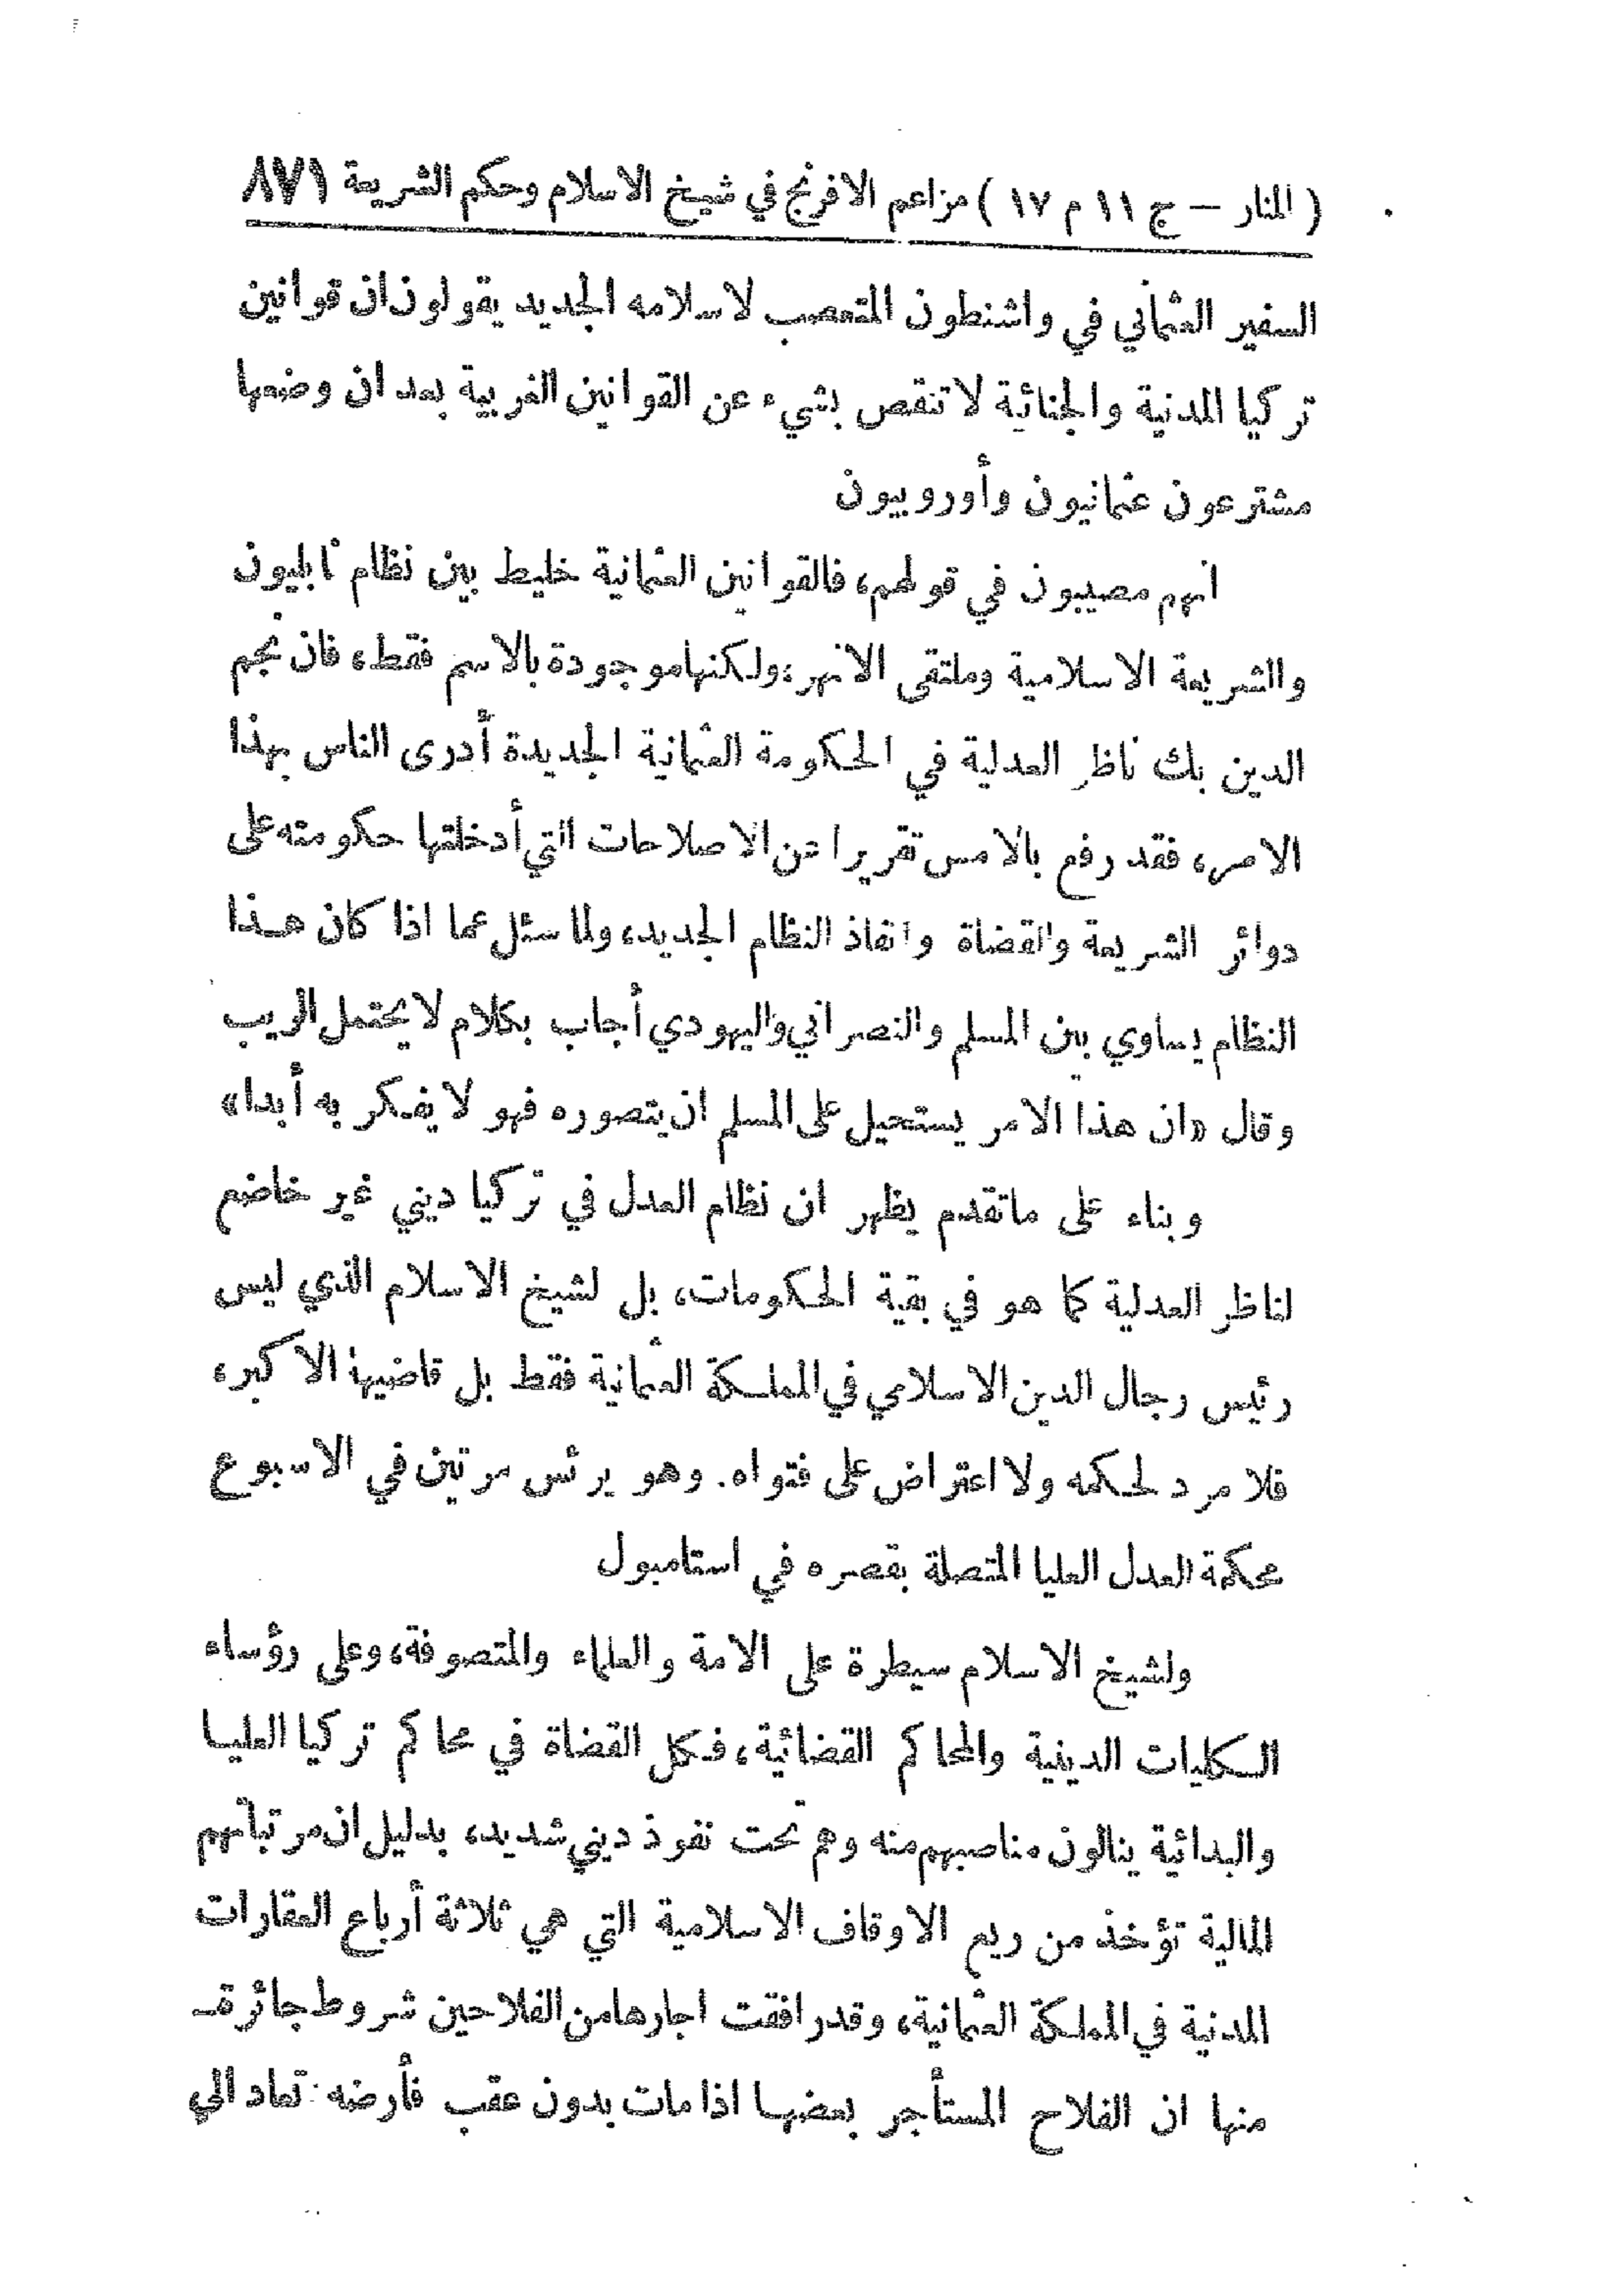 ( المنار – ج ١١ م ١٧ ) مزاعم الافرنج في شيخ الاسلام وحكم الشريعة ٨٧١
السفير العثماني في واشنطون المتعصب لاسلامه الجديد يقولون ان قوانين
تركيا المدنية والجنائية لا تنقص بشيء عن القوانين الغربية بعد ان وضعها
مشترعون عثمانيون وأوروبيون
انهم مصيبون في قولهم، فالقوانين العثمانية خليط بين نظام نابليون
والشريعة الاسلامية وملتقى الانهر، ولكنها موجودة بالاسم فقط، فان نجم
الدين بك ناظر العدلية في الحكومة العثمانية الجديدة أدرى الناس بهذا
الامر، فقد رفع بالامس تقريرا عن الاصلاحات التي أدخلتها حكومته على
دوائر الشريعة والقضاة وانفاذ النظام الجديد، ولما سئل عما اذا كان هذا
النظام يساوي بين المسلم والنصراني واليهودي أجاب بكلام لا يحتمل الريب
وقال «ان هذا الامر يستحيل على المسلم ان يتصوره فهو لا يفكر به أبدا»
وبناء على ماتقدم يظهر ان نظام العدل في تركيا ديني غير خاضع
لناظر العدلية كما هو في بقية الحكومات، بل لشيخ الاسلام الذي ليس
رئيس رجال الدين الاسلامي في المملكة العثمانية فقط بل قاضيها الاكبر،
فلا مرد لحكمه ولا اعتراض على فتواه. وهو يرئس مرتين في الاسبوع
محكمة العدل العليا المتصلة بقصره في استامبول
ولشيخ الاسلام سيطرة على الامة والعلماء والمتصوفة، وعلى رؤساء
الكليات الدينية والمحاكم القضائية، فكل القضاة في محاكم تركيا العليا
والبدائية ينالون مناصبهم منه وهم تحت نفوذ ديني شديد، بدليل ان مرتباتهم
المالية تؤخذ من ريع الاوقاف الاسلامية التي هي ثلاثة أرباع العقارات
المدنية في المملكة العثمانية، وقد رافقت اجارها من الفلاحين شروط جائرة–
منها ان الفلاح المستأجر بعضها اذا مات بدون عقب فأرضه تعاد الى